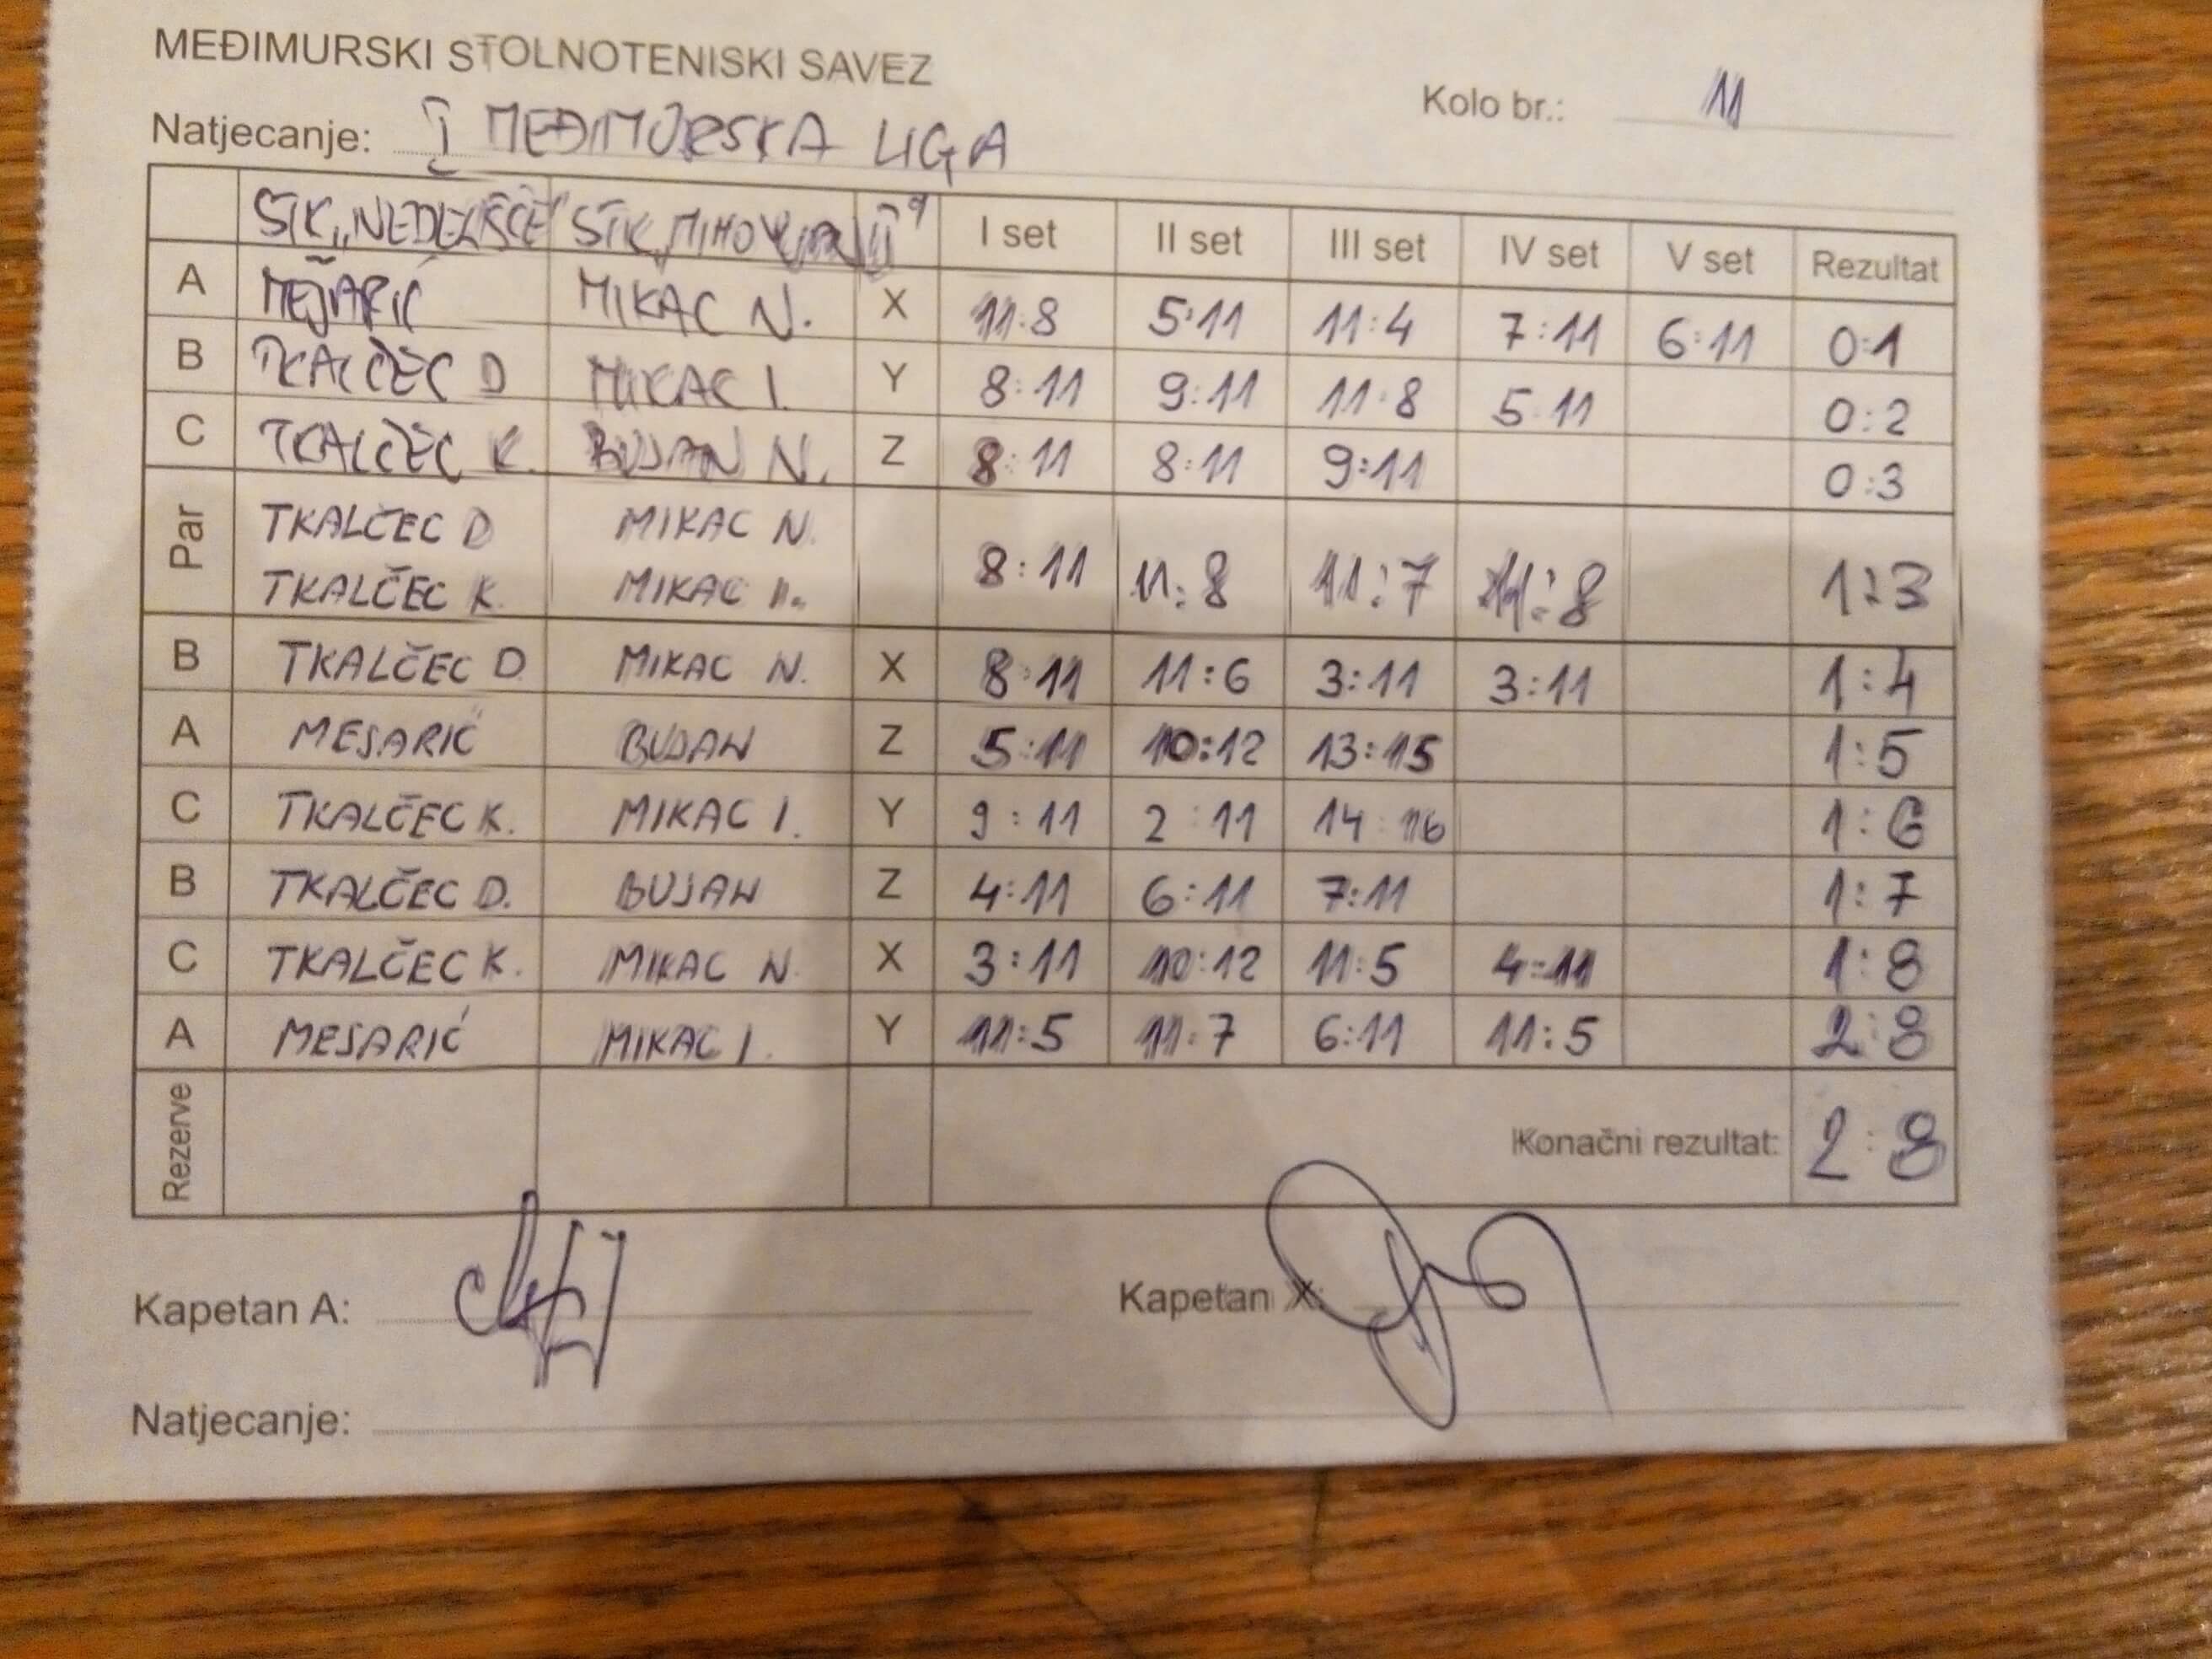 MEĐIMURSKI STOLNOTENISKI SAVEZ
Kolo br.: 11
Natjecanje: I MEĐIMURSKA LIGA
STK „NEDELIŠĆE" STK I set II set III set IV set V set Rezultat
A MESARIĆ MIKAC N. X 11:8 5:11 11:4 7:11 6:11 0:1
B TKALČEC D MIKAC I. Y 8:11 9:11 11:8 5:11 0:2
C TKALČEC K. BUJAN N. Z 8:11 8:11 9:11 0:3
Par TKALČEC D MIKAC N. 8:11 11:8 11:7 11:8 1:3
TKALČEC K. MIKAC I.
B TKALČEC D. MIKAC N. X 8:11 11:6 3:11 3:11 1:4
A MESARIĆ BUJAN Z 5:11 10:12 13:15 1:5
C TKALČEC K. MIKAC I. Y 9:11 2:11 14:16 1:6
B TKALČEC D. BUJAN Z 4:11 6:11 7:11 1:7
C TKALČEC K. MIKAC N. X 3:11 10:12 11:5 4:11 1:8
A MESARIĆ MIKAC I. Y 11:5 11:7 6:11 11:5 2:8
Rezerve Konačni rezultat: 2:8
Kapetan A: Kapetan X:
Natjecanje: